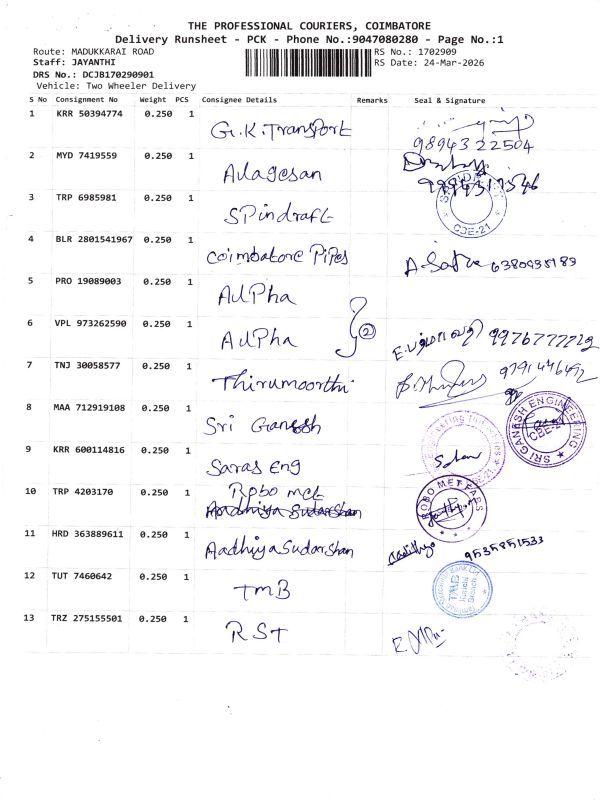 THE PROFESSIONAL COURIERS, COIMBATORE
Delivery Runsheet - PCK - Phone No.:9047080280 - Page No.:1
Route: MADUKKARAI ROAD RS No.: 1702909
Staff: JAYANTHI RS Date: 24-Mar-2026
DRS No.: DCJB170290901
Vehicle: Two Wheeler Delivery
S No Consignment No Weight PCS Consignee Details Remarks Seal & Signature
1 KRR 50394774 0.250 1 G.K.Transport
9894322504
2 MYD 7419559 0.250 1 Alagesan
3 TRP 6985981 0.250 1 SPindraft
CBE-21
4 BLR 2801541967 0.250 1 Coimbatore PiPes
5 PRO 19089003 0.250 1 AlPha
6 VPL 973262590 0.250 1 AlPha 2
7 TNJ 30058577 0.250 1 Thirumoorthi 9791446492
8 MAA 712919108 0.250 1 Sri Ganesh SRI GANESH ENGINEERING CBE-21
9 KRR 600114816 0.250 1 Saras Eng
10 TRP 4203170 0.250 1 Robo met ROBO MET FABS
Aadhiya Sudarshan
11 HRD 363889611 0.250 1 Aadhiya Sudarshan Aadithya 9535851533
12 TUT 7460642 0.250 1 TMB TMB
13 TRZ 275155501 0.250 1 RST